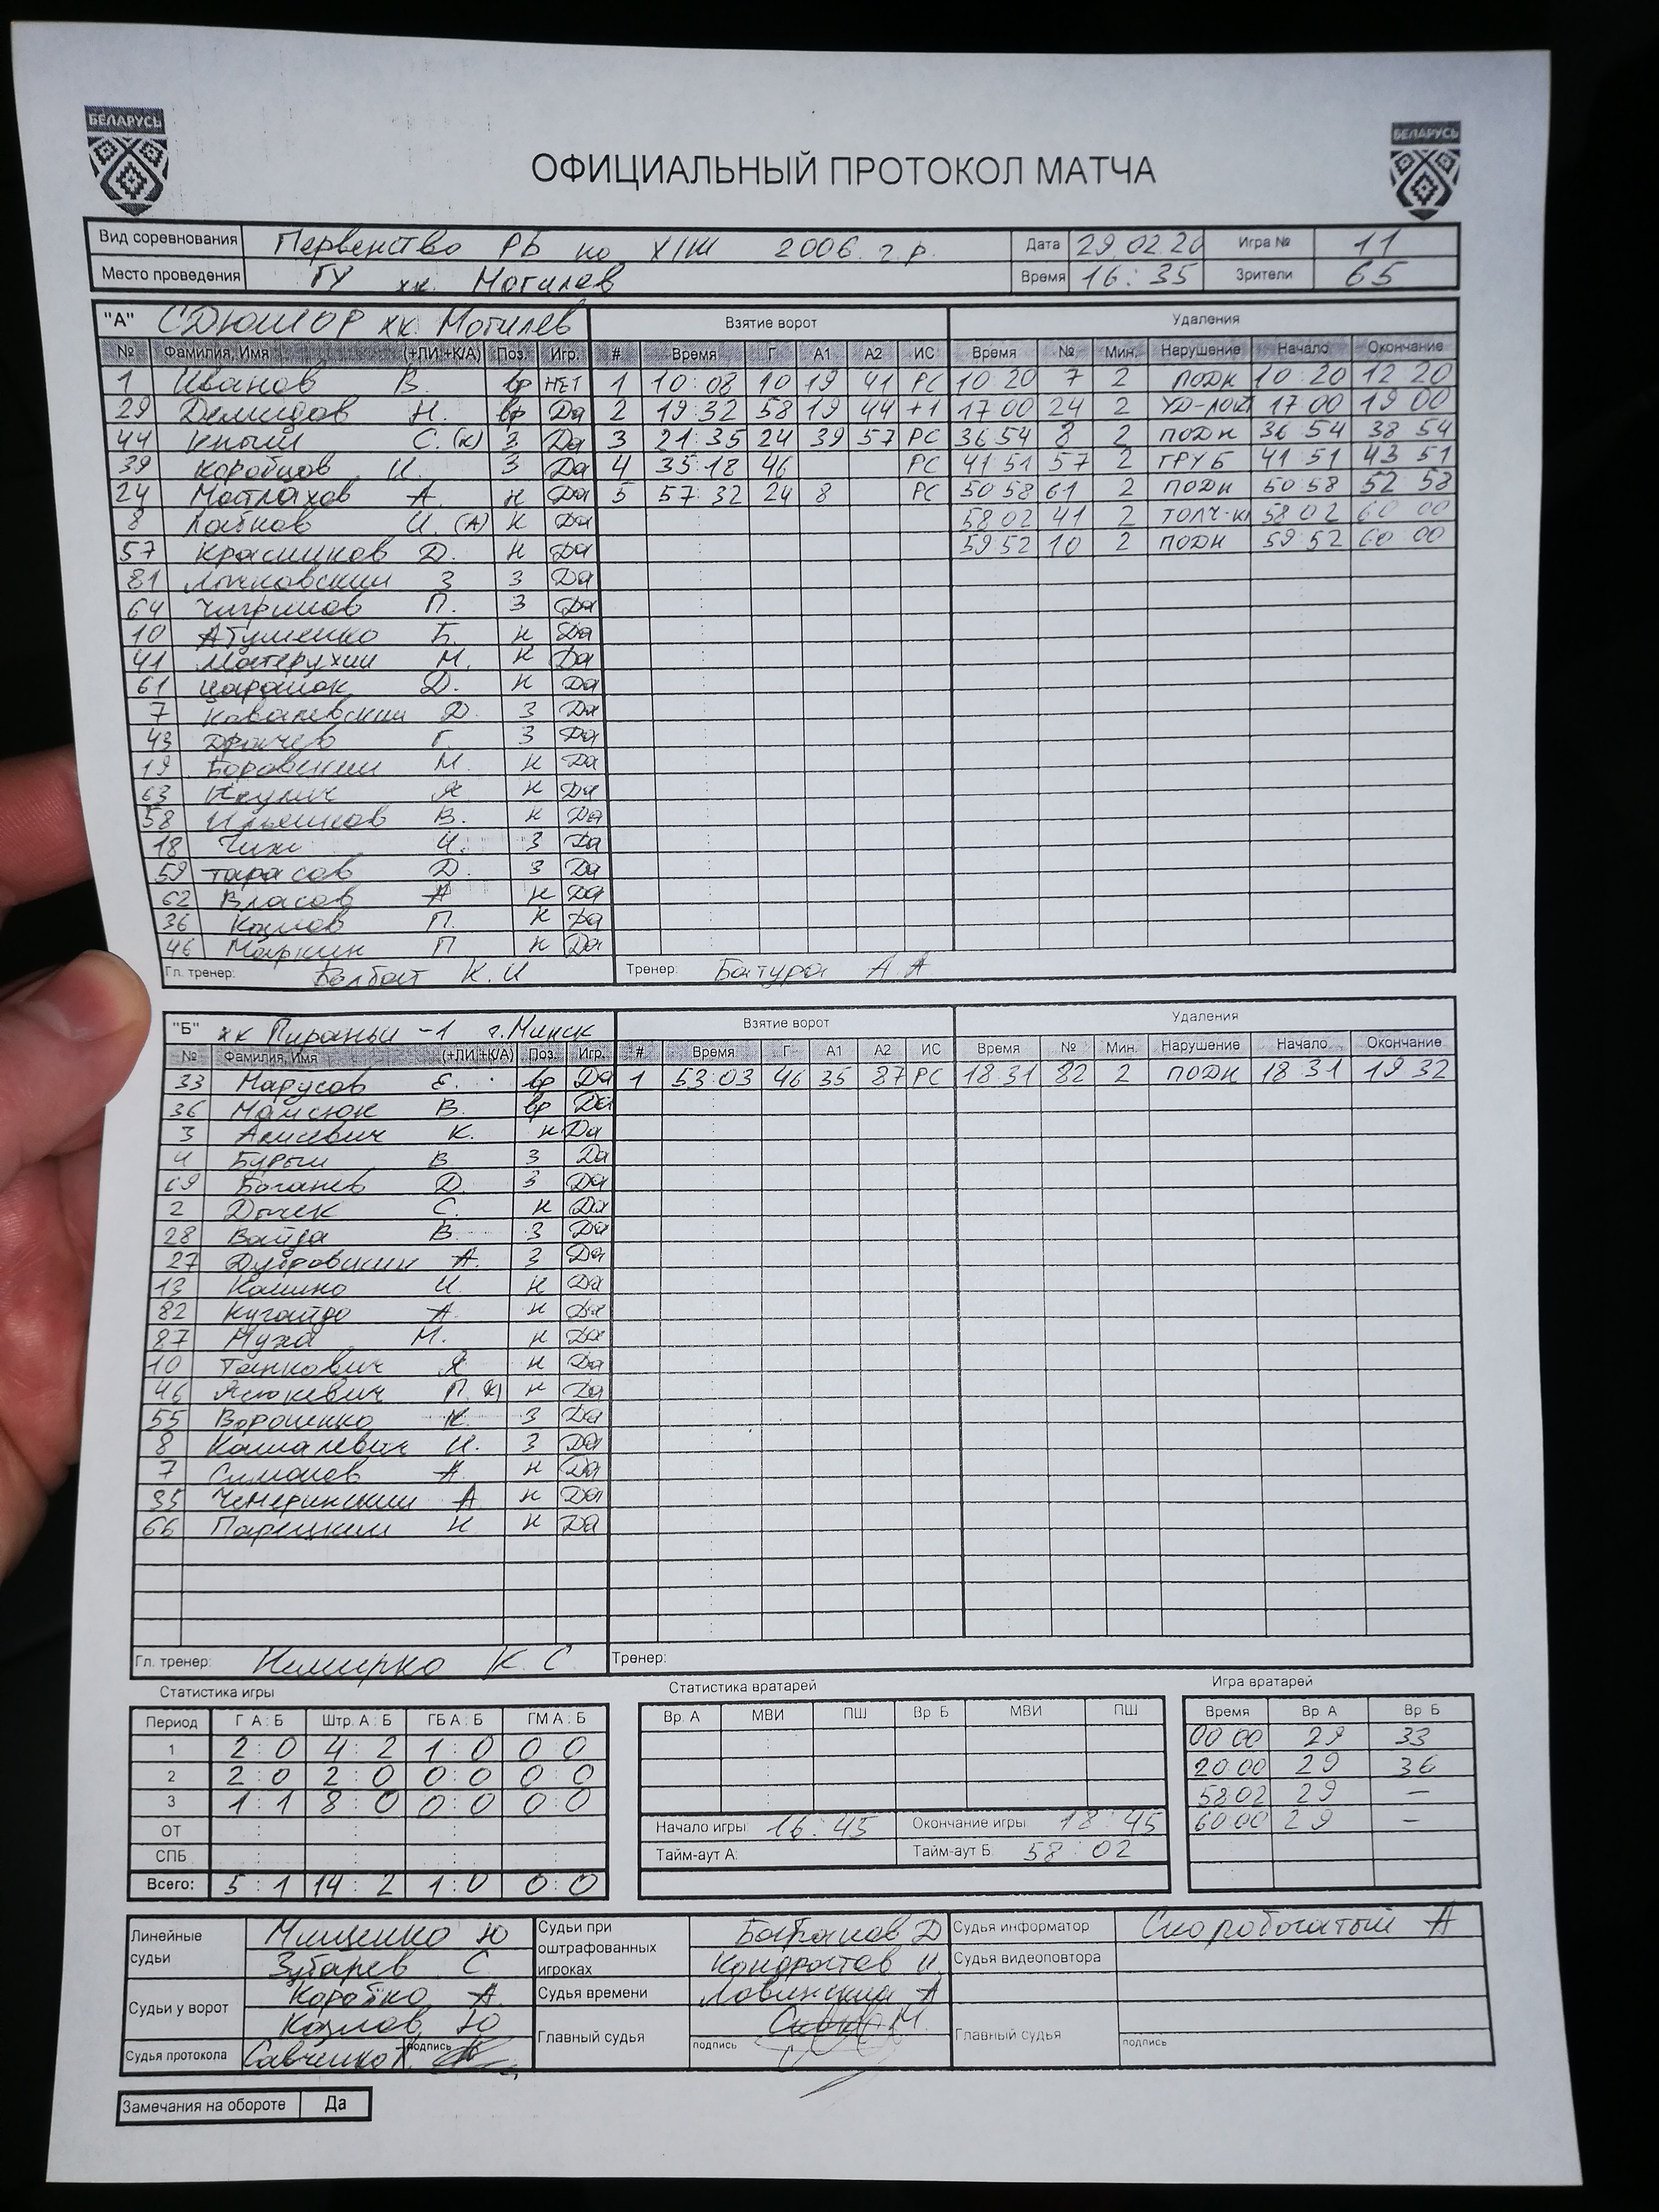 БЕЛАРУСЬ
БЕЛАРУСЬ
ОФИЦИАЛЬНЫЙ ПРОТОКОЛ МАТЧА
Вид соревнования Первенство РБ по Х/Ш 2006 г.р. Дата 29.02.20 Игра № 11
Место проведения ГУ хк. Могилев Время 16:35 Зрители 65
"А" СДЮШОР хк. Могилев Взятие ворот Удаления
№ Фамилия, Имя (+ЛИ,+К/А) Поз. Игр. # Время Г А1 А2 ИС Время № Мин. Нарушение Начало Окончание
1 Иванов В. вр НЕТ 1 10:08 10 19 41 РС 10 20 7 2 ПОДН 10 20 12 20
29 Демидов Н. вр Да 2 19:32 58 19 44 +1 17 00 24 2 17 00 19 00
44 С. (К) З Да 3 21:35 24 39 57 РС 36 54 8 2 ПОДН 36 54 38 54
39 Коробцов И. З Да 4 35:18 46 РС 41 51 57 2 ГРУБ 41 51 43 51
24 Матлахов А. Н Да 5 57:32 24 8 РС 50 58 61 2 ПОДН 50 58 52 58
8 Лобков И. (А) Н Да 58 02 41 2 ТОЛЧ-К 58 02 60 00
57 Красиков Д. Н Да 59 52 10 2 ПОДН 59 52 60 00
81 З З Да
64 Чигринов П. З Да
10 Атуменко Б. Н Да
41 Матерухин М. Н Да
61 Царанок Д. Н Да
7 Ковалевский Д З Да
43 Драчев Г. З Да
19 Боровский М. Н Да
63 Я Н Да
58 Ильюшков В. Н Да
18 И. З Да
59 Тарасов Д. З Да
62 Власов А Н Да
36 Козлов П. Н Да
46 Маркин П Н Да
Гл. тренер: Болбат К.И Тренер: Батура А А
"Б" хк Пираньи -1 г.Минск Взятие ворот Удаления
№ Фамилия, Имя (+ЛИ,+К/А) Поз. Игр. # Время Г А1 А2 ИС Время № Мин. Нарушение Начало Окончание
33 Марусов Е. вр Да 1 53:03 46 35 87 РС 18 31 82 2 ПОДН 18 31 19 32
36 Майсюк В. вр Да
3 Алисевич К. Н Да
4 Бурый В. З Да
69 Боганев Д. З Да
2 Дычек С. Н Да
28 Вайда В. З Да
27 Дубровский А. З Да
13 Калино И. Н Да
82 Кугайдо А. Н Да
87 Муха М. Н Да
10 Танкович Я Н Да
46 Ясюкевич П. К) Н Да
55 Ворошенко К. З Да
8 Кашалевич И. З Да
7 Симонов А. Н Да
35 Чемеринский А. Н Да
66 Парецкий Н. Н Да
Гл. тренер: Немирко К. С Тренер:
Статистика игры Статистика вратарей Игра вратарей
Период Г А : Б Штр. А : Б ГБ А : Б ГМ А : Б Вр. А МВИ ПШ Вр. Б МВИ ПШ Время Вр. А Вр. Б
1 2 : 0 4 : 2 1 : 0 0 0 00 00 29 33
2 2 : 0 2 : 0 0 : 0 0 : 0 20:00 29 36
3 1 : 1 8 : 0 0 : 0 0 : 0 58 02 29 –
ОТ : : : : Начало игры: 16:45 Окончание игры 18:45 60:00 29 –
СПБ : : : : Тайм-аут А: Тайм-аут Б: 58:02
Всего: 5 : 1 14 : 2 1 : 0 0 : 0
Линейные судьи Мищенко Ю Судьи при оштрафованных игроках Батраков Д Судья информатор Скоробогатый А
Зубарев С. Кондратов И. Судья видеоповтора
Судьи у ворот Коротко А. Судья времени Ловянский А
Козлов Ю Главный судья М. Главный судья
Судья протокола Савченко подпись подпись подпись
Замечания на обороте Да